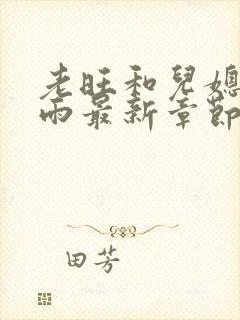 老旺和兒媳
雨最新章節
田芳